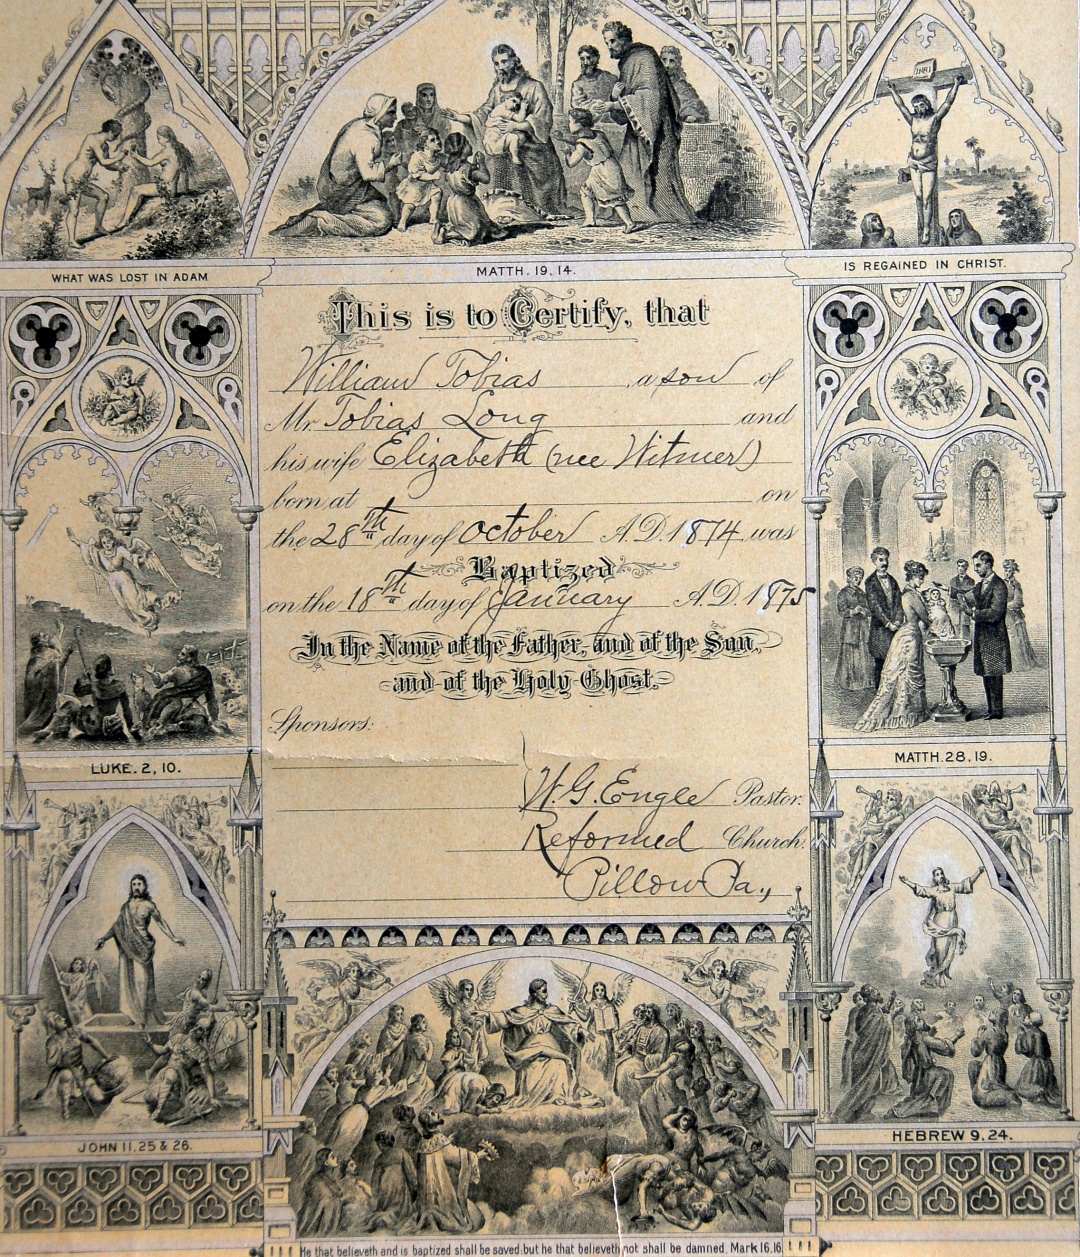 INRI
WHAT WAS LOST IN ADAM
MATTH. 19, 14.
IS REGAINED IN CHRIST.
This is to Certify, that
William Tobias a son of
Mr. Tobias Long and
his wife Elizabeth (nee Witmer)
born at on
the 28th day of October A.D. 1874 was
Baptized
on the 18th day of January A.D. 1875
In the Name of the Father, and of the Son,
and of the Holy Ghost.
Sponsors:
LUKE. 2, 10.
MATTH. 28, 19.
W. G. Engle Pastor.
Reformed Church.
Pillow Pa.,
JOHN 11, 25 & 26.
HEBREW 9, 24.
He that believeth and is baptized shall be saved: but he that believeth not shall be damned, Mark 16,16.